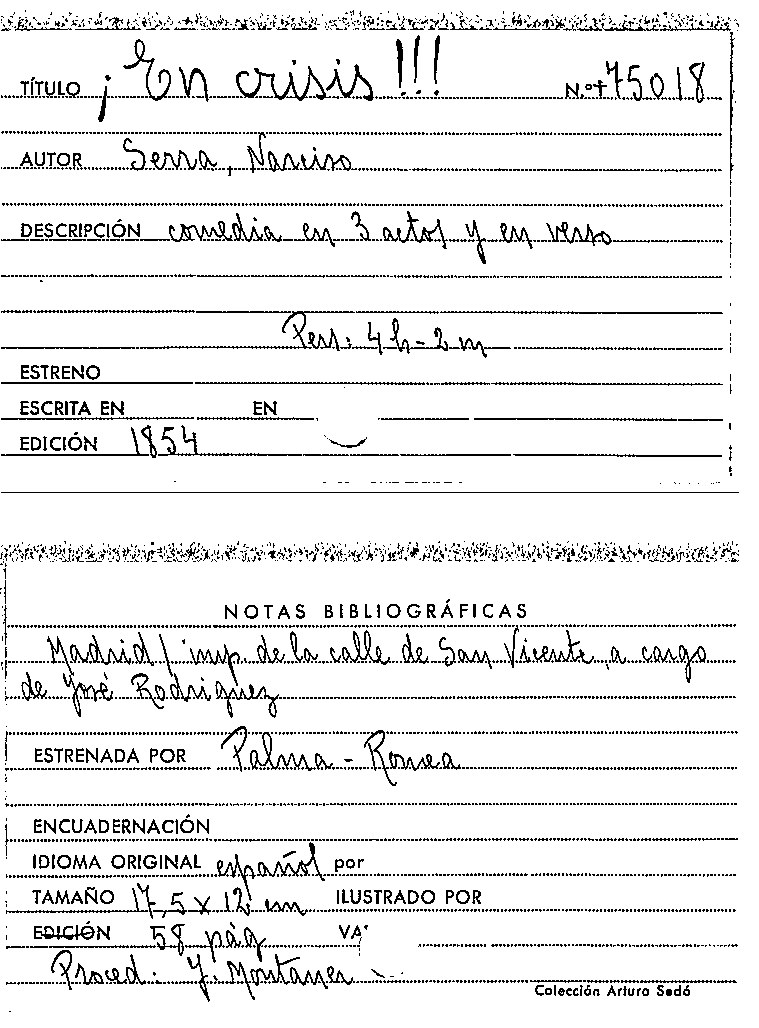 TÍTULO ¡En crisis!!! N.º 75018
AUTOR Serra, Narciso
DESCRIPCIÓN comedia en 3 actos y en verso
Pers: 4 h - 2 m
ESTRENO
ESCRITA EN EN
EDICIÓN 1854
NOTAS BIBLIOGRÁFICAS
Madrid / imp. de la calle de San Vicente, a cargo
de José Rodriguez
ESTRENADA POR Palma - Romea
ENCUADERNACIÓN
IDIOMA ORIGINAL español por
TAMAÑO 17,5 x 12 cm ILUSTRADO POR
EDICIÓN 58 pág VA
Proced: J. Montaner
Colección Arturo Sedó